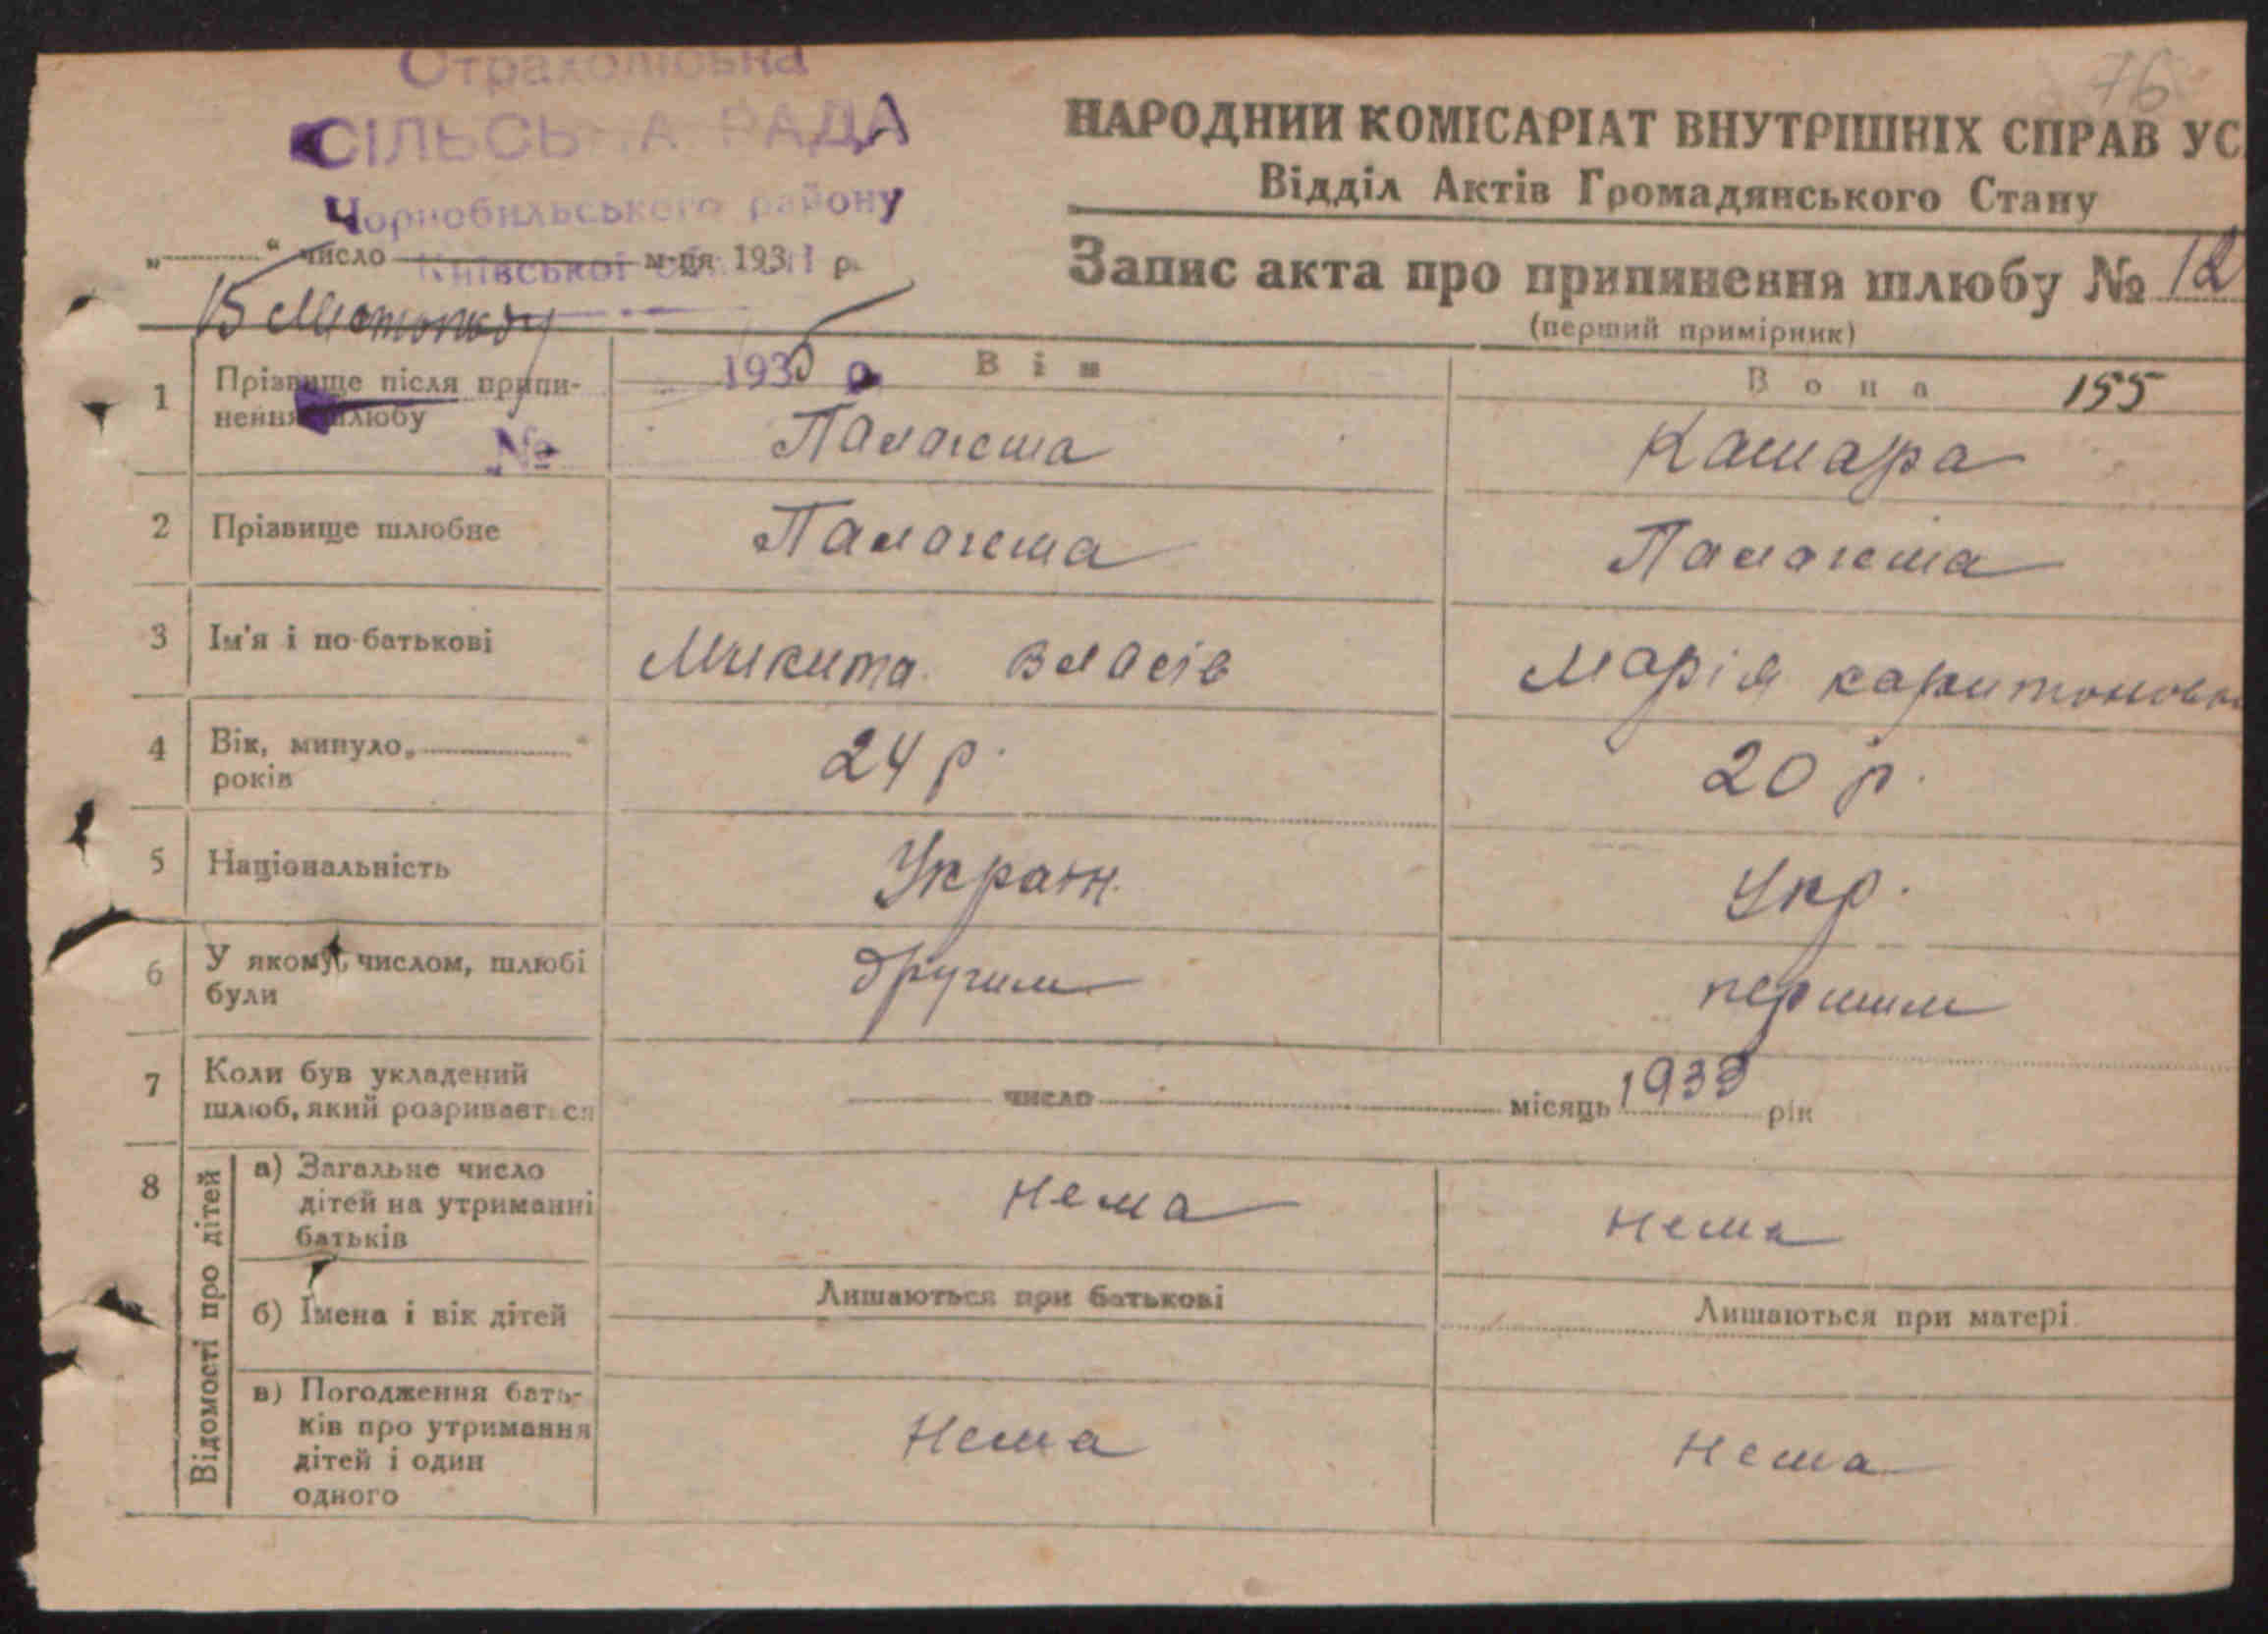 76
Страхоліська
СІЛЬСЬКА РАДА
Чорнобильського району
Київської
НАРОДНИЙ КОМІСАРІАТ ВНУТРІШНІХ СПРАВ УС
Відділ Актів Громадянського Стану
„ “ число м-ця 193 р.
15
Запис акта про припинення шлюбу № 12
(перший примірник)
1935 р.
№
155
1 Прізвище після припи-
нення шлюбу
Він
Вона
Кашара
2 Прізвище шлюбне
3 Ім'я і по-батькові
Микита Власів
Марія харитоновна
4 Вік, минуло
років
24 р.
20 р.
5 Національність
Україн.
Укр.
6 У якому, числом, шлюбі
були
другим
першим
7 Коли був укладений
шлюб, який розривається
число місяць 1933 рік
8 Відомості про дітей
а) Загальне число
дітей на утриманні
батьків
нема
нема
б) Імена і вік дітей
Лишаються при батькові
Лишаються при матері
в) Погодження бать-
ків про утримання
дітей і один
одного
Нема
Нема